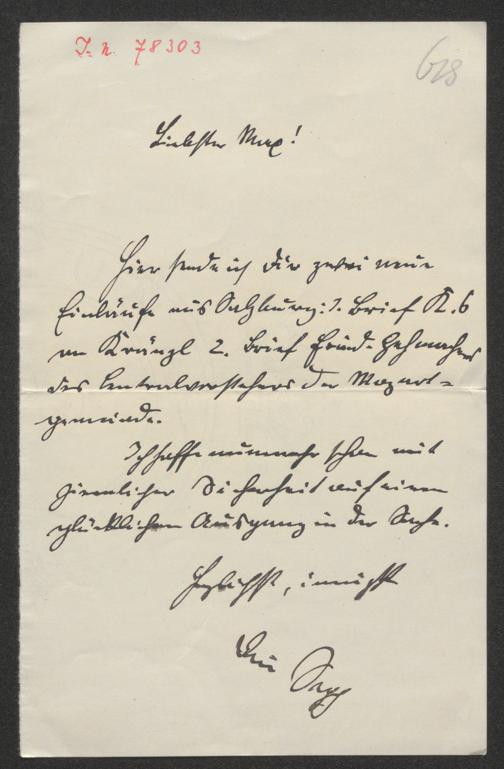 I. N. 78303
618
Liebster Max!
Hier sende ich Dir zwei neue
Einläufe aus Salzburg: 1. Brief K. 6
an Kränzl 2. Brief
des Centralvorstehers der Mozart=
gemeinde.
Ich hoffe nunmehr schon mit
ziemlicher Sicherheit auf einen
glücklichen Ausgang in der Sache.
Herzlichst, innigst
Dein